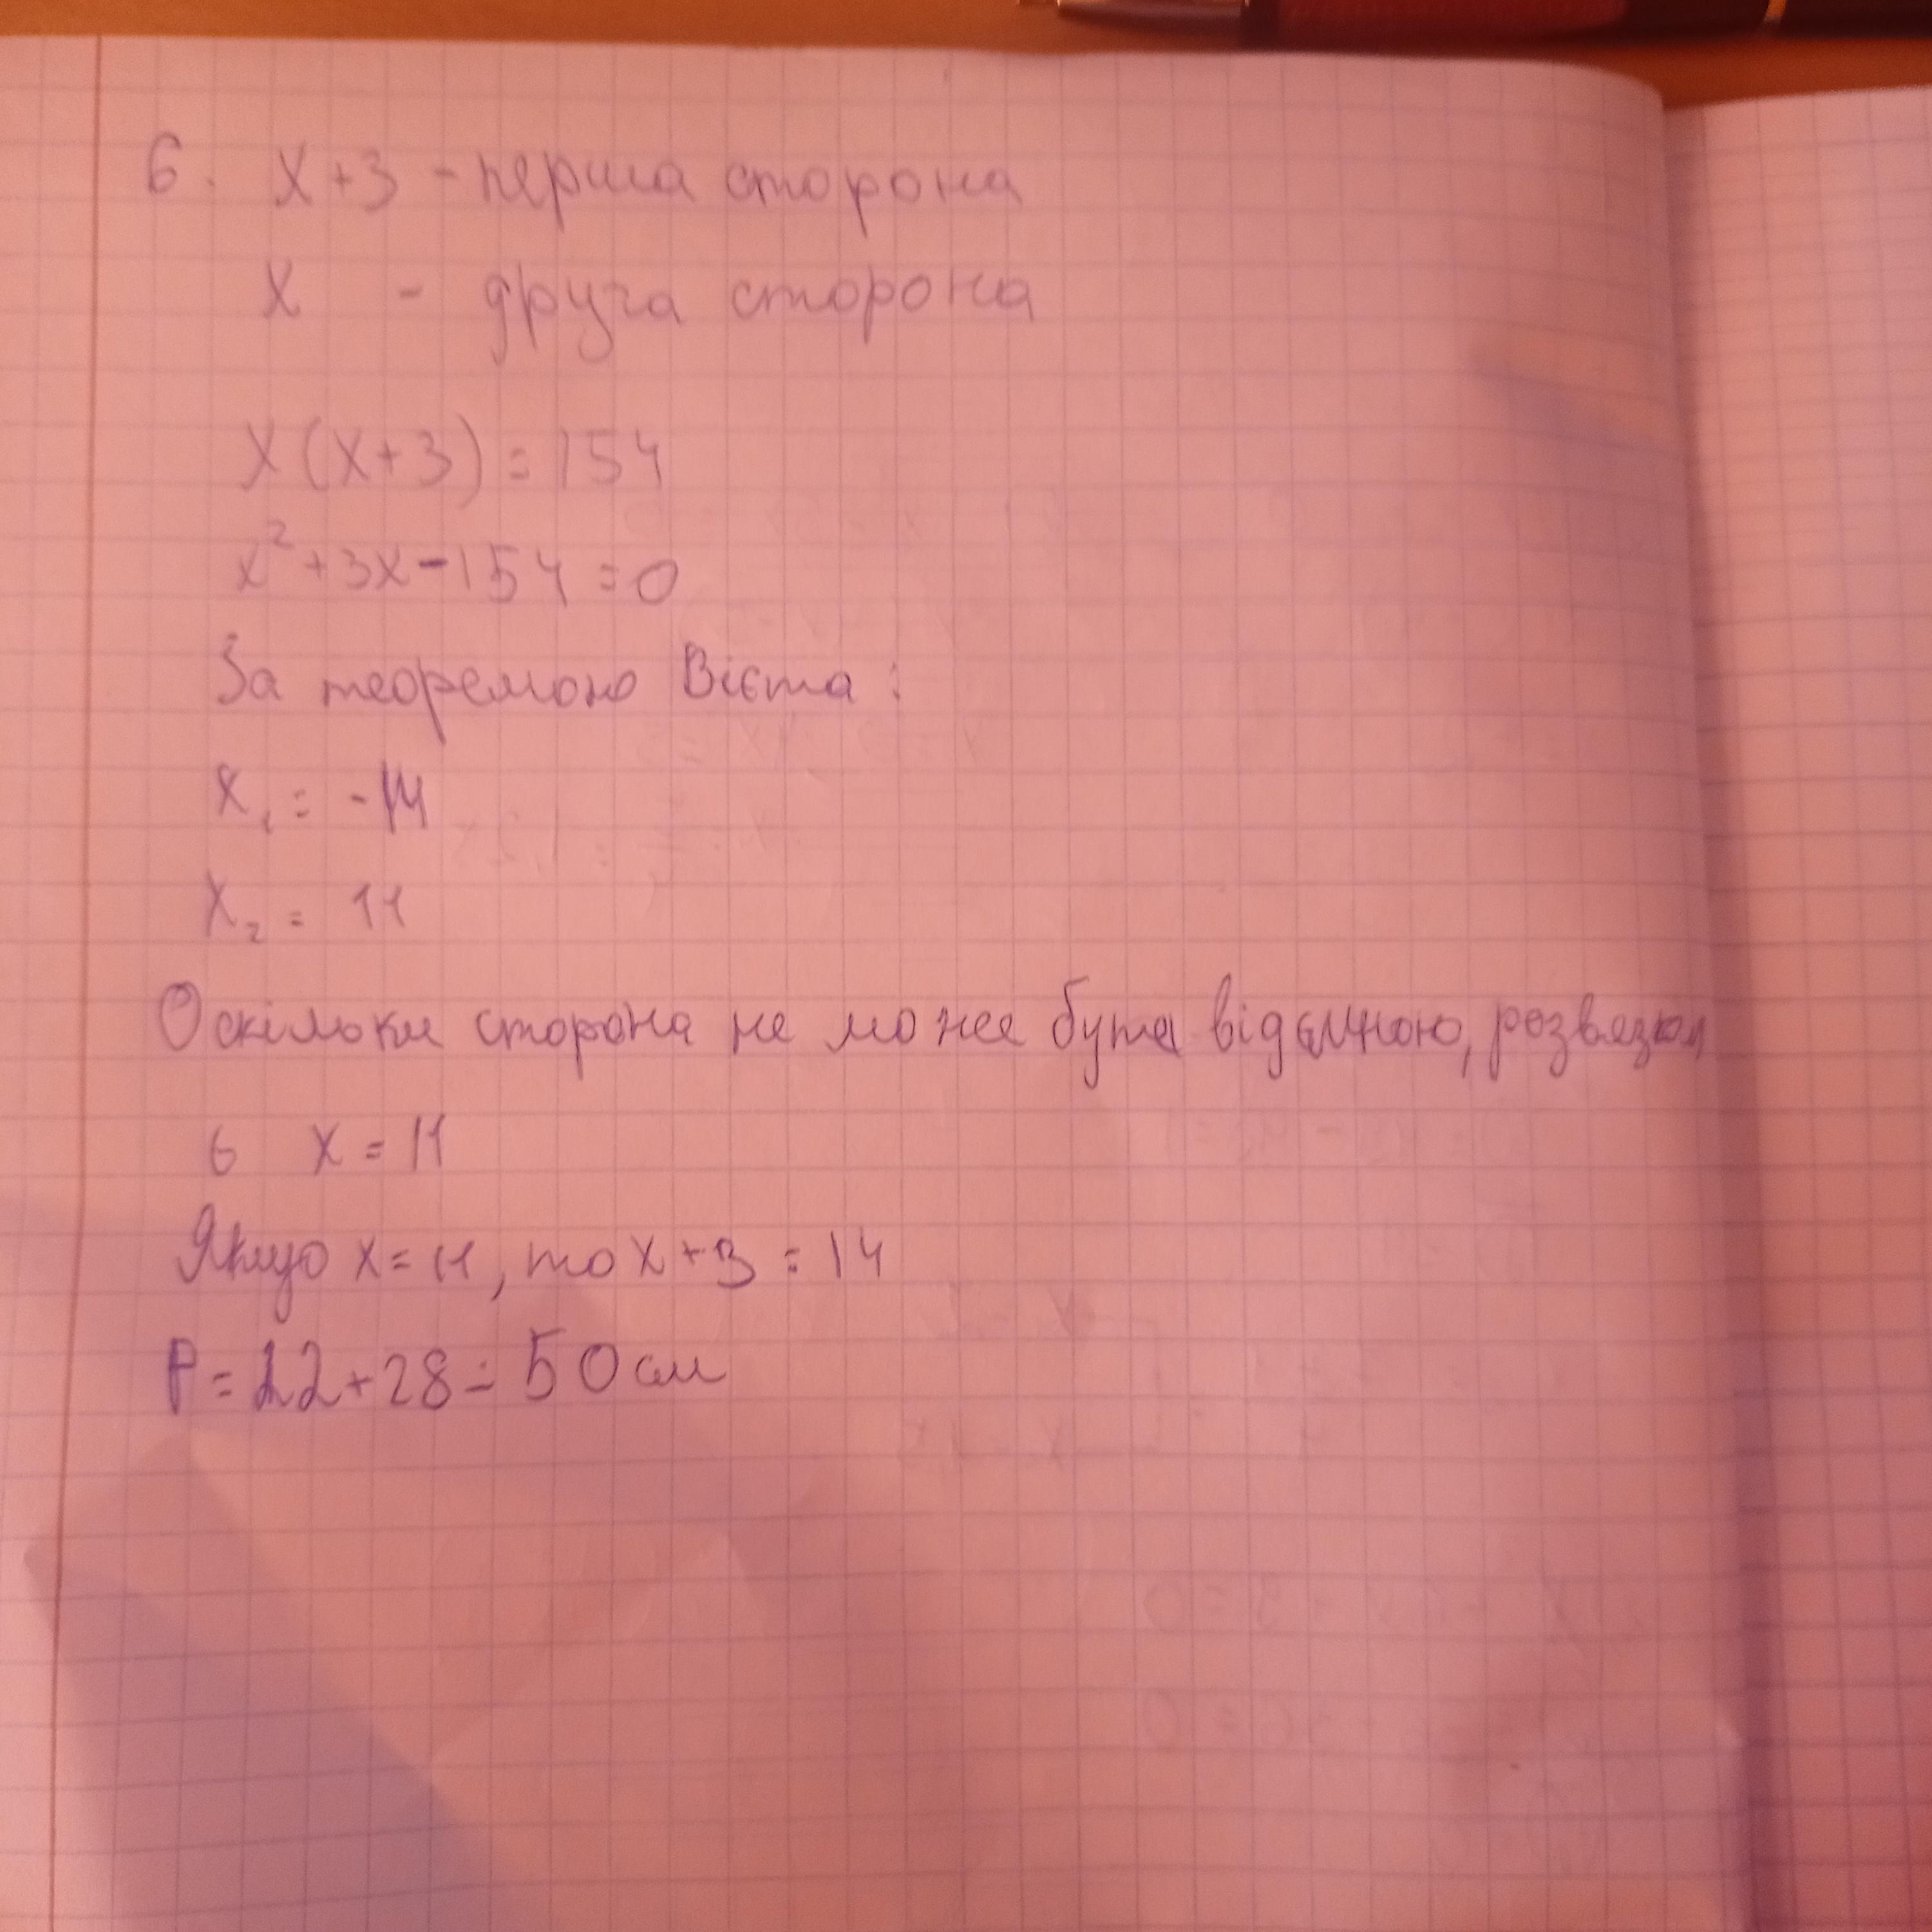 6. x+3 - перша сторона
x - друга сторона
x(x+3)=154
x²+3x-154=0
За теоремою Вієта:
x₁= -14
x₂= 11
Оскільки сторона не може бути відємною, розвязком
є x=11
Якщо x=11, то x+3=14
P=22+28=50см